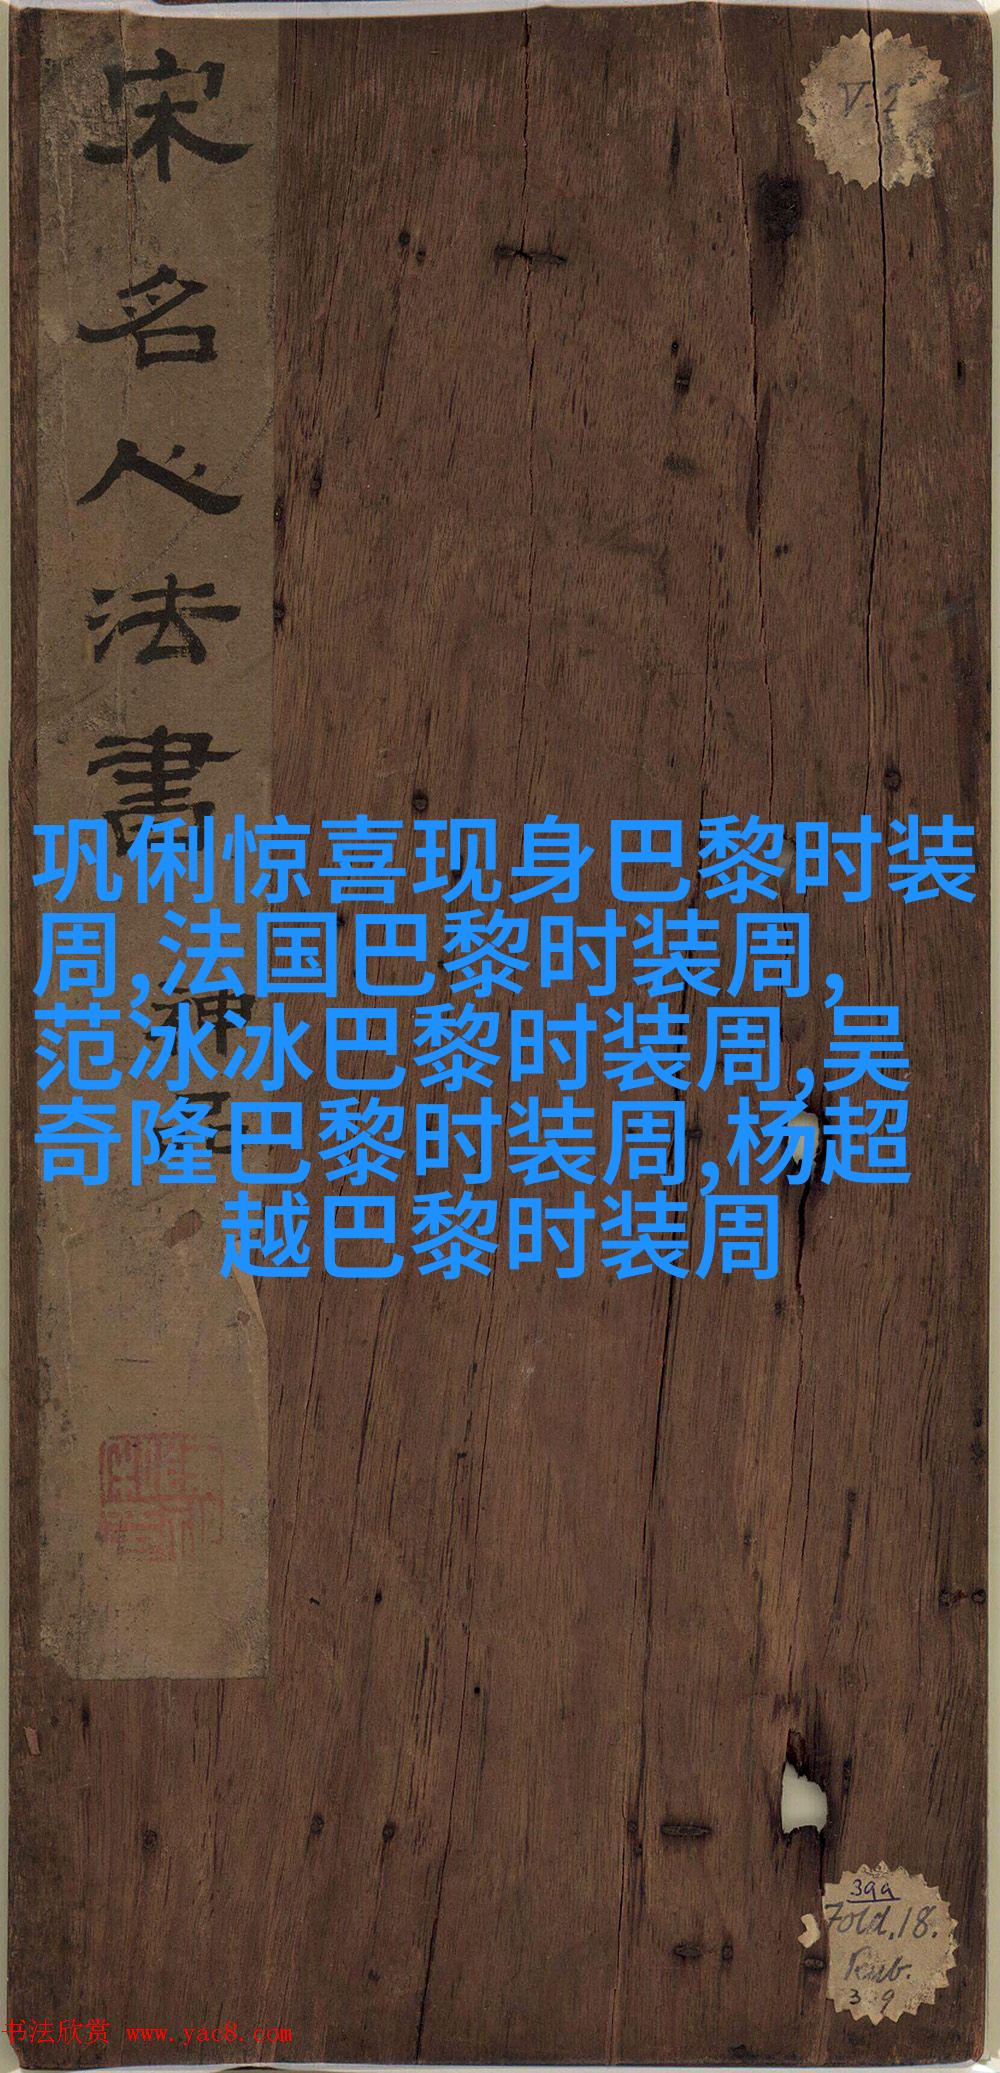 宋名人法書
神品
V-2
巩俐惊喜现身巴黎时装
周,法国巴黎时装周,
范冰冰巴黎时装周,吴
奇隆巴黎时装周,杨超
越巴黎时装周
399
Fold.18.
书法欣赏 www.yac8.com